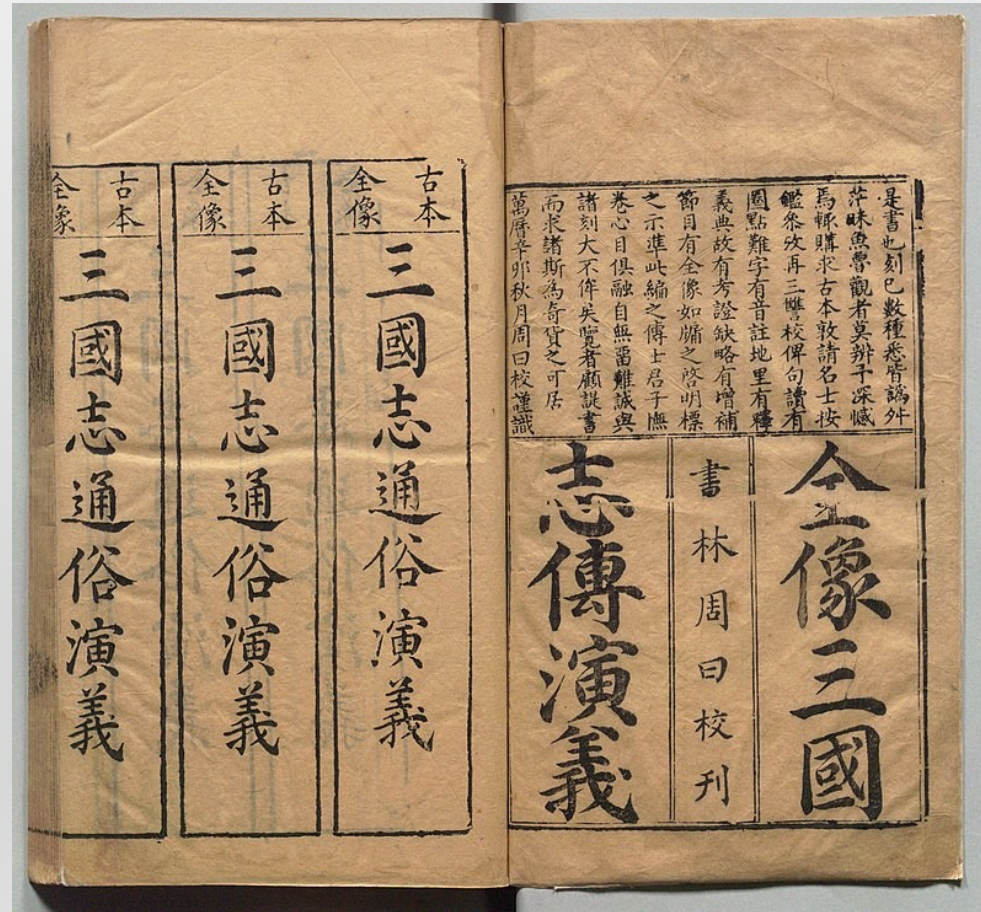 是書也刻已數種悉皆譌舛
茫昧魚魯觀者莫辨予深憾
焉輒購求古本敦請名士按
鑑參攷再三讐校俾句讀有
圈點難字有音註地里有釋
義典故有考證缺略有增補
節目有全像如牖之啓明標
之示準此編之傳士君子憮
卷心目俱融自無留難誠與
諸刻大不侔矣覽者顧諟書
而求諸斯爲奇貨之可居
萬曆辛卯秋月周曰校謹識
全像三國
書林周曰校刊
志傳演義
古本
全像
三國志通俗演義
古本
全像
三國志通俗演義
古本
全像
三國志通俗演義